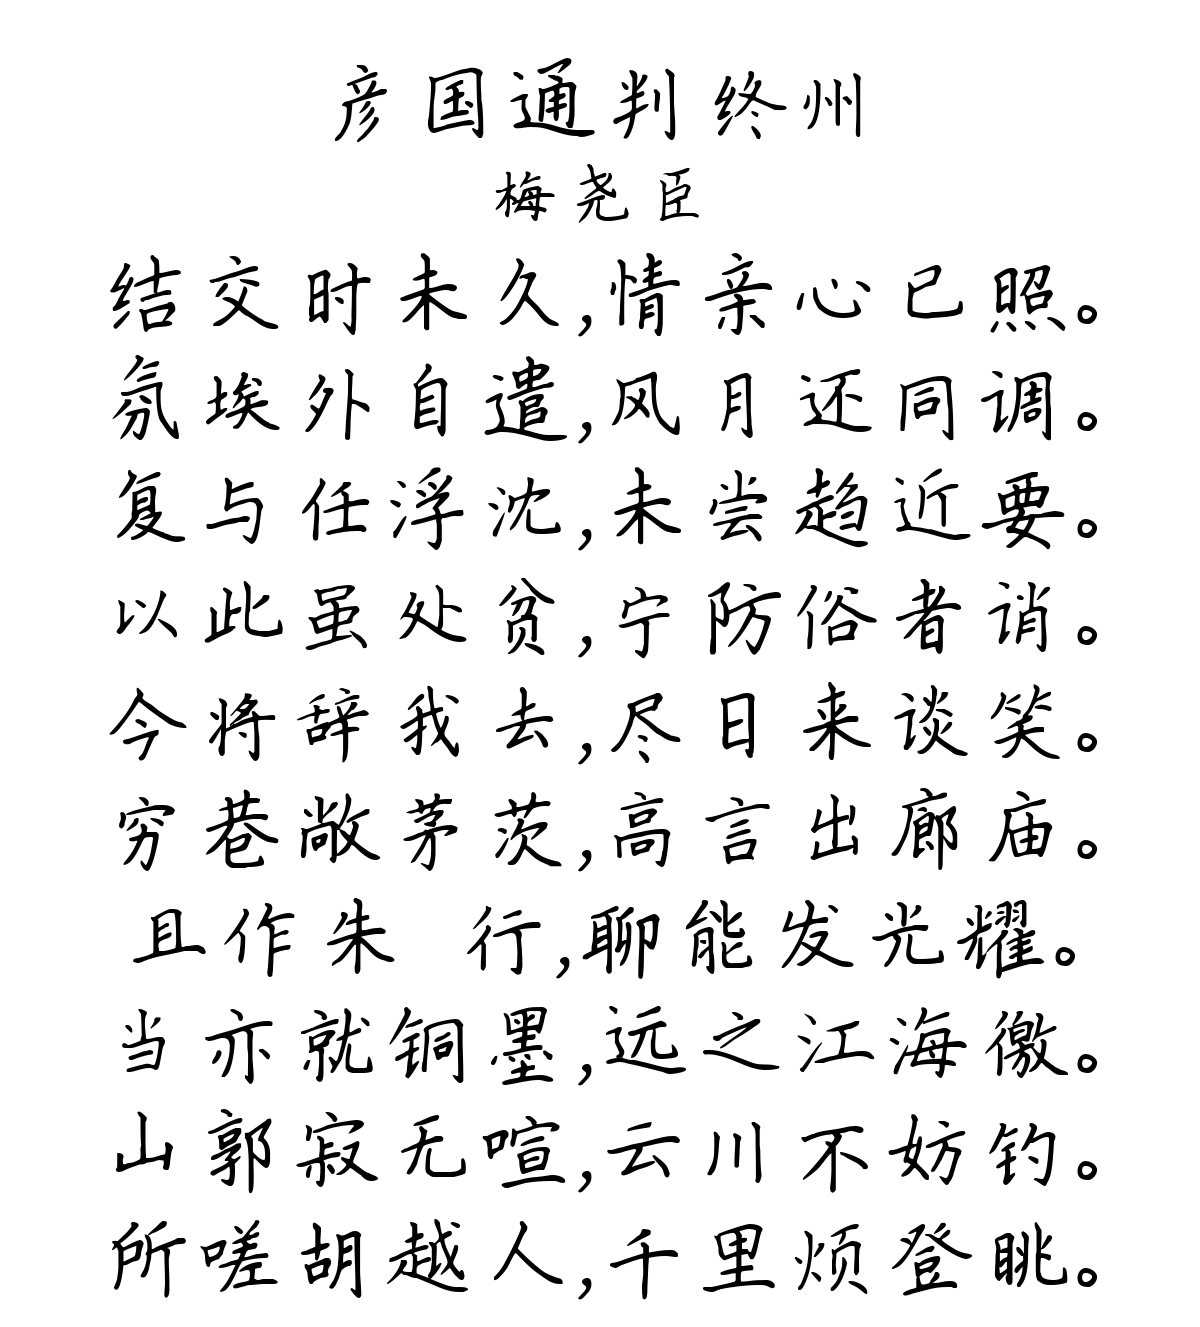 彦国通判终州
梅尧臣
结交时未久,情亲心已照。
氛埃外自遣,风月还同调。
复与任浮沈,未尝趋近要。
以此虽处贫,宁防俗者诮。
今将辞我去,尽日来谈笑。
穷巷敞茅茨,高言出廊庙。
且作朱 行,聊能发光耀。
当亦就铜墨,远之江海徼。
山郭寂无喧,云川不妨钓。
所嗟胡越人,千里烦登眺。